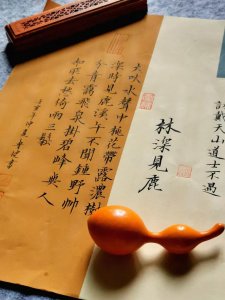 訪戴天山道士不遇
林深見鹿
犬吠水聲中桃花帶露濃樹
深時見鹿溪午不聞鐘野竹
分青靄飛泉掛碧峰無人
知所去愁倚兩三鬆